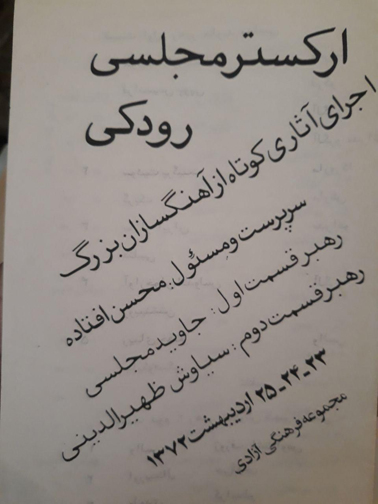 ارکستر مجلسی
رودکی
اجرای آثاری کوتاه از آهنگسازان بزرگ
سرپرست و مسئول: محسن افتاده
رهبر قسمت اول: جاوید مجلسی
رهبر قسمت دوم: سیاوش ظهیرالدینی
۲۳-۲۴-۲۵ اردیبهشت ۱۳۷۲
مجموعه فرهنگی آزادی